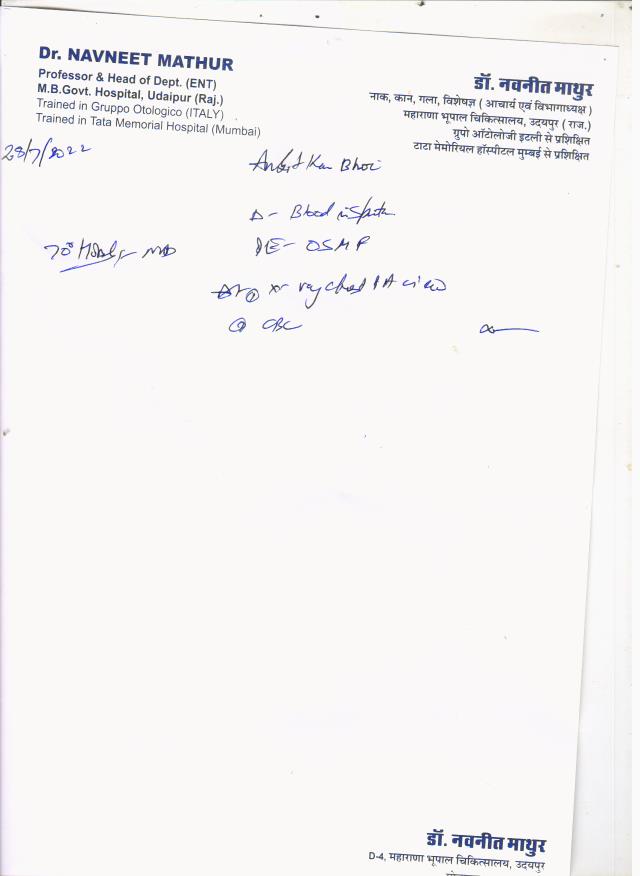 Dr. NAVNEET MATHUR
Professor & Head of Dept. (ENT)
M.B.Govt. Hospital, Udaipur (Raj.)
Trained in Gruppo Otologico (ITALY)
Trained in Tata Memorial Hospital (Mumbai)
डॉ. नवनीत माथुर
नाक, कान, गला, विशेषज्ञ ( आचार्य एवं विभागाध्यक्ष )
महाराणा भूपाल चिकित्सालय, उदयपुर ( राज.)
ग्रुपो ऑटोलोजी इटली से प्रशिक्षित
टाटा मेमोरियल हॉस्पीटल मुम्बई से प्रशिक्षित
28/7/2022
Bhoi
Blood in
OSMF
70°
② CBC
डॉ. नवनीत माथुर
D-4, महाराणा भूपाल चिकित्सालय, उदयपुर